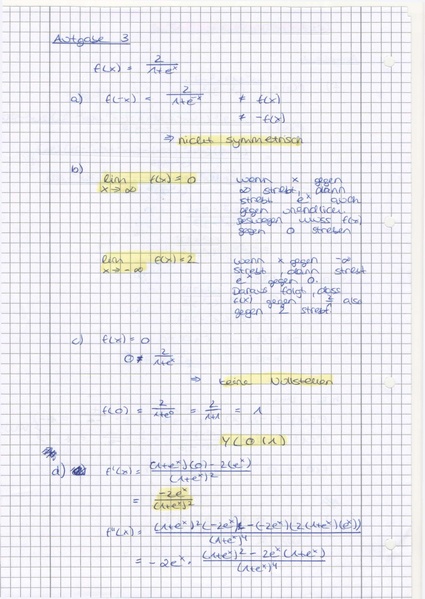 Aufgabe 3
f(x) = 2/(1+e^x)
a) f(-x) = 2/(1+e^-x) ≠ f(x)
≠ -f(x)
⇒ nicht symmetrisch
b)
lim x→∞ f(x) = 0 wenn x gegen
∞ strebt, dann
strebt e^x auch
gegen unendlich.
deswegen muss f(x)
gegen 0 streben
lim x→-∞ f(x) = 2 wenn x gegen -∞
strebt, dann strebt
e^x gegen 0.
Daraus folgt, dass
f(x) gegen 2/1 also
gegen 2 strebt.
c) f(x) = 0
0 ≠ 2/(1+e^x)
⇒ keine Nullstellen
f(0) = 2/(1+e^0) = 2/(1+1) = 1
Y(0|1)
d) f'(x) = ((1+e^x)(0) - 2(e^x))/(1+e^x)^2
= -2e^x/(1+e^x)^2
f''(x) = ((1+e^x)^2(-2e^x) - (-2e^x)(2(1+e^x)(e^x)))/(1+e^x)^4
= -2e^x · ((1+e^x)^2 - 2e^x(1+e^x))/(1+e^x)^4